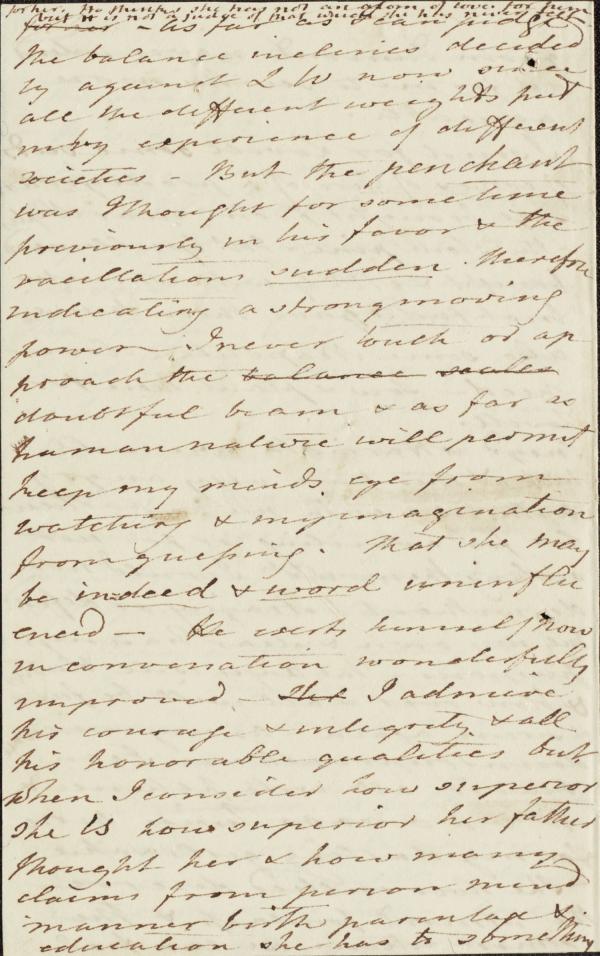 for her. He thinks she has not an atom of love for him
but it is not a judge of that which she has never felt
former - as far as I can judge
the balance inclines decided
ly against L W now since
all the different weights put
in by experience of different
societies - But the penchant
was I thought for some time
previously in his favor & the
vacillations sudden. therefore
indicating a strong moving
power. I never touch or ap
proach the balance scales
doubtful beam & as far as
human nature will permit
keep my minds eye from
watching & my imagination
from guessing. That she may
be indeed & word uninflu
enced - He exerts himself now
in conversation wonderfully
improved - The I admire
his courage & integrity & all
his honorable qualities but
when I consider how superior
she is how superior her father
thought her & how many
claims from person mind
manner birth parentage &
education she has to something